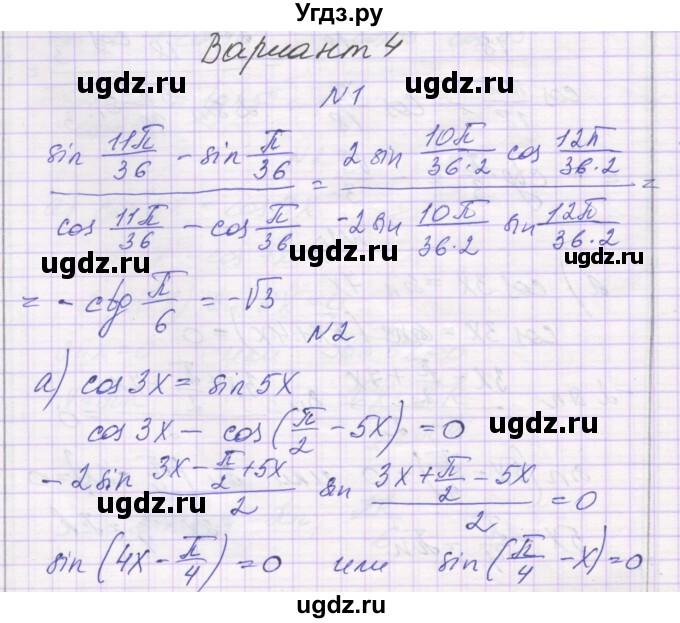 Угдз.ру
Вариант 4
ugdz.ru ugdz.ru
N1
sin 11π/36 − sin π/36 / cos 11π/36 − cos π/36 = 2 sin 10π/36·2 cos 12π/36·2 / −2 sin 10π/36·2 sin 12π/36·2 =
ugdz.ru ugdz.ru
= − ctg π/6 = −√3
N2
а) cos 3x = sin 5x
ugdz.ru ugdz.ru
cos 3x − cos (π/2 − 5x) = 0
−2 sin 3x − π/2 + 5x / 2 sin 3x + π/2 − 5x / 2 = 0
ugdz.ru ugdz.ru
sin (4x − π/4) = 0 или sin (π/4 − x) = 0
ugdz.ru